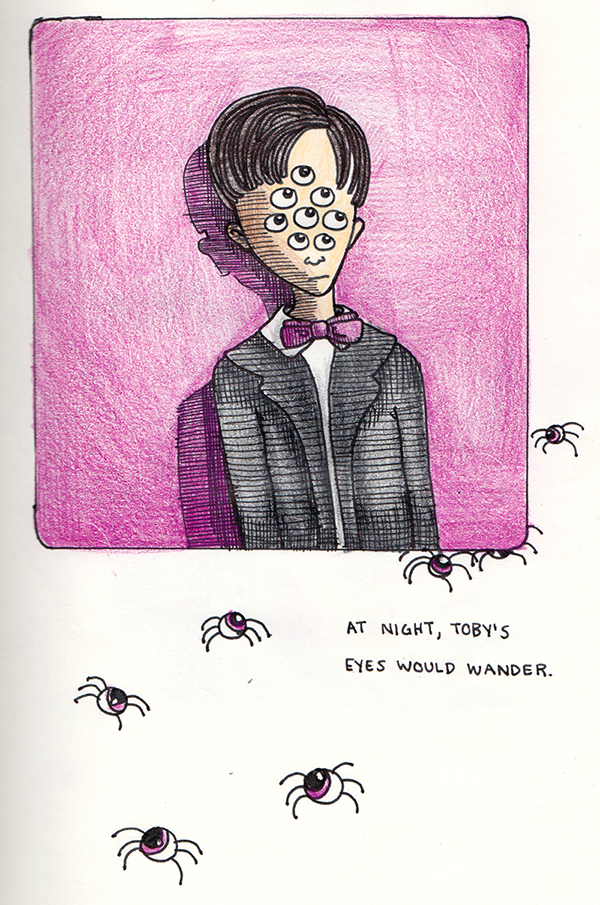 AT NIGHT, TOBY'S
EYES WOULD WANDER.